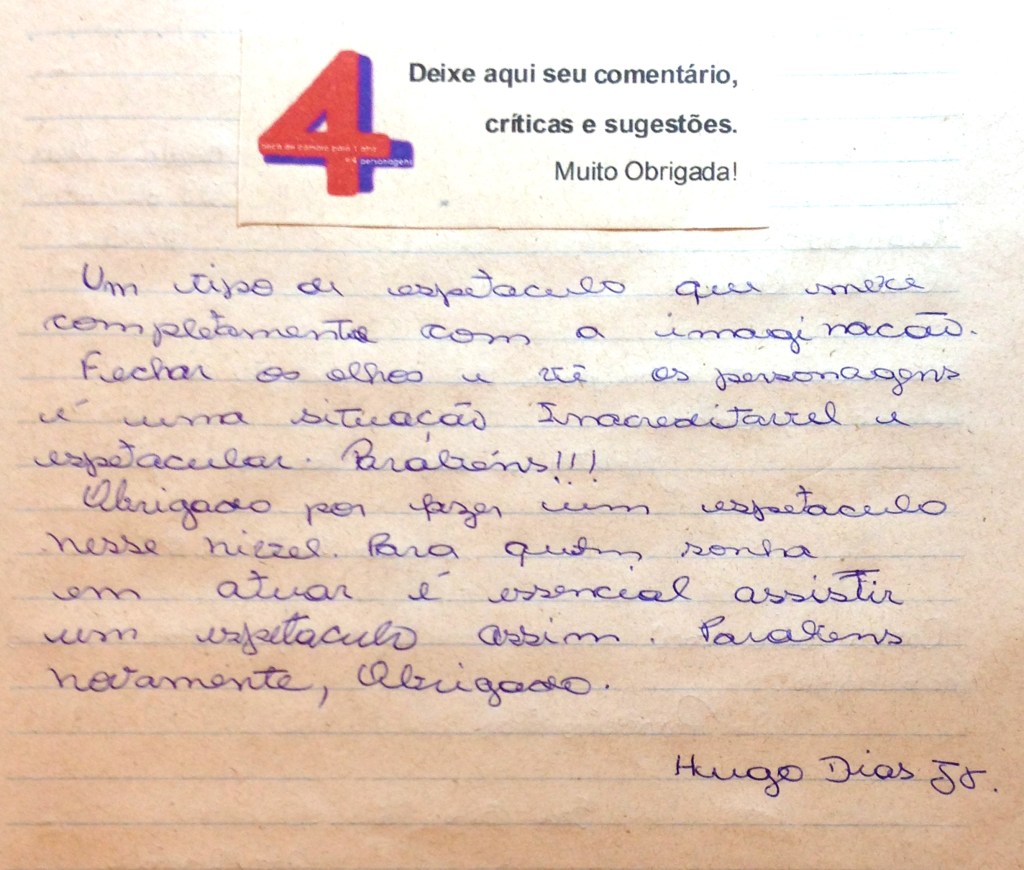 Deixe aqui seu comentário,
críticas e sugestões.
Muito Obrigada!
4
peça de câmara para 1 atriz
e 4 personagens
Um tipo de espetaculo que mexe
completamente com a imaginacão.
Fechar os olhos e vê os personagens
é uma situação Inacreditavel e
espetacular. Parabéns!!!
Obrigado por fazer um espetaculo
nesse nivel. Para quem sonha
em atuar é essencial assistir
um espetaculo assim. Parabens
novamente, Obrigado.
Hugo Dias Jr.